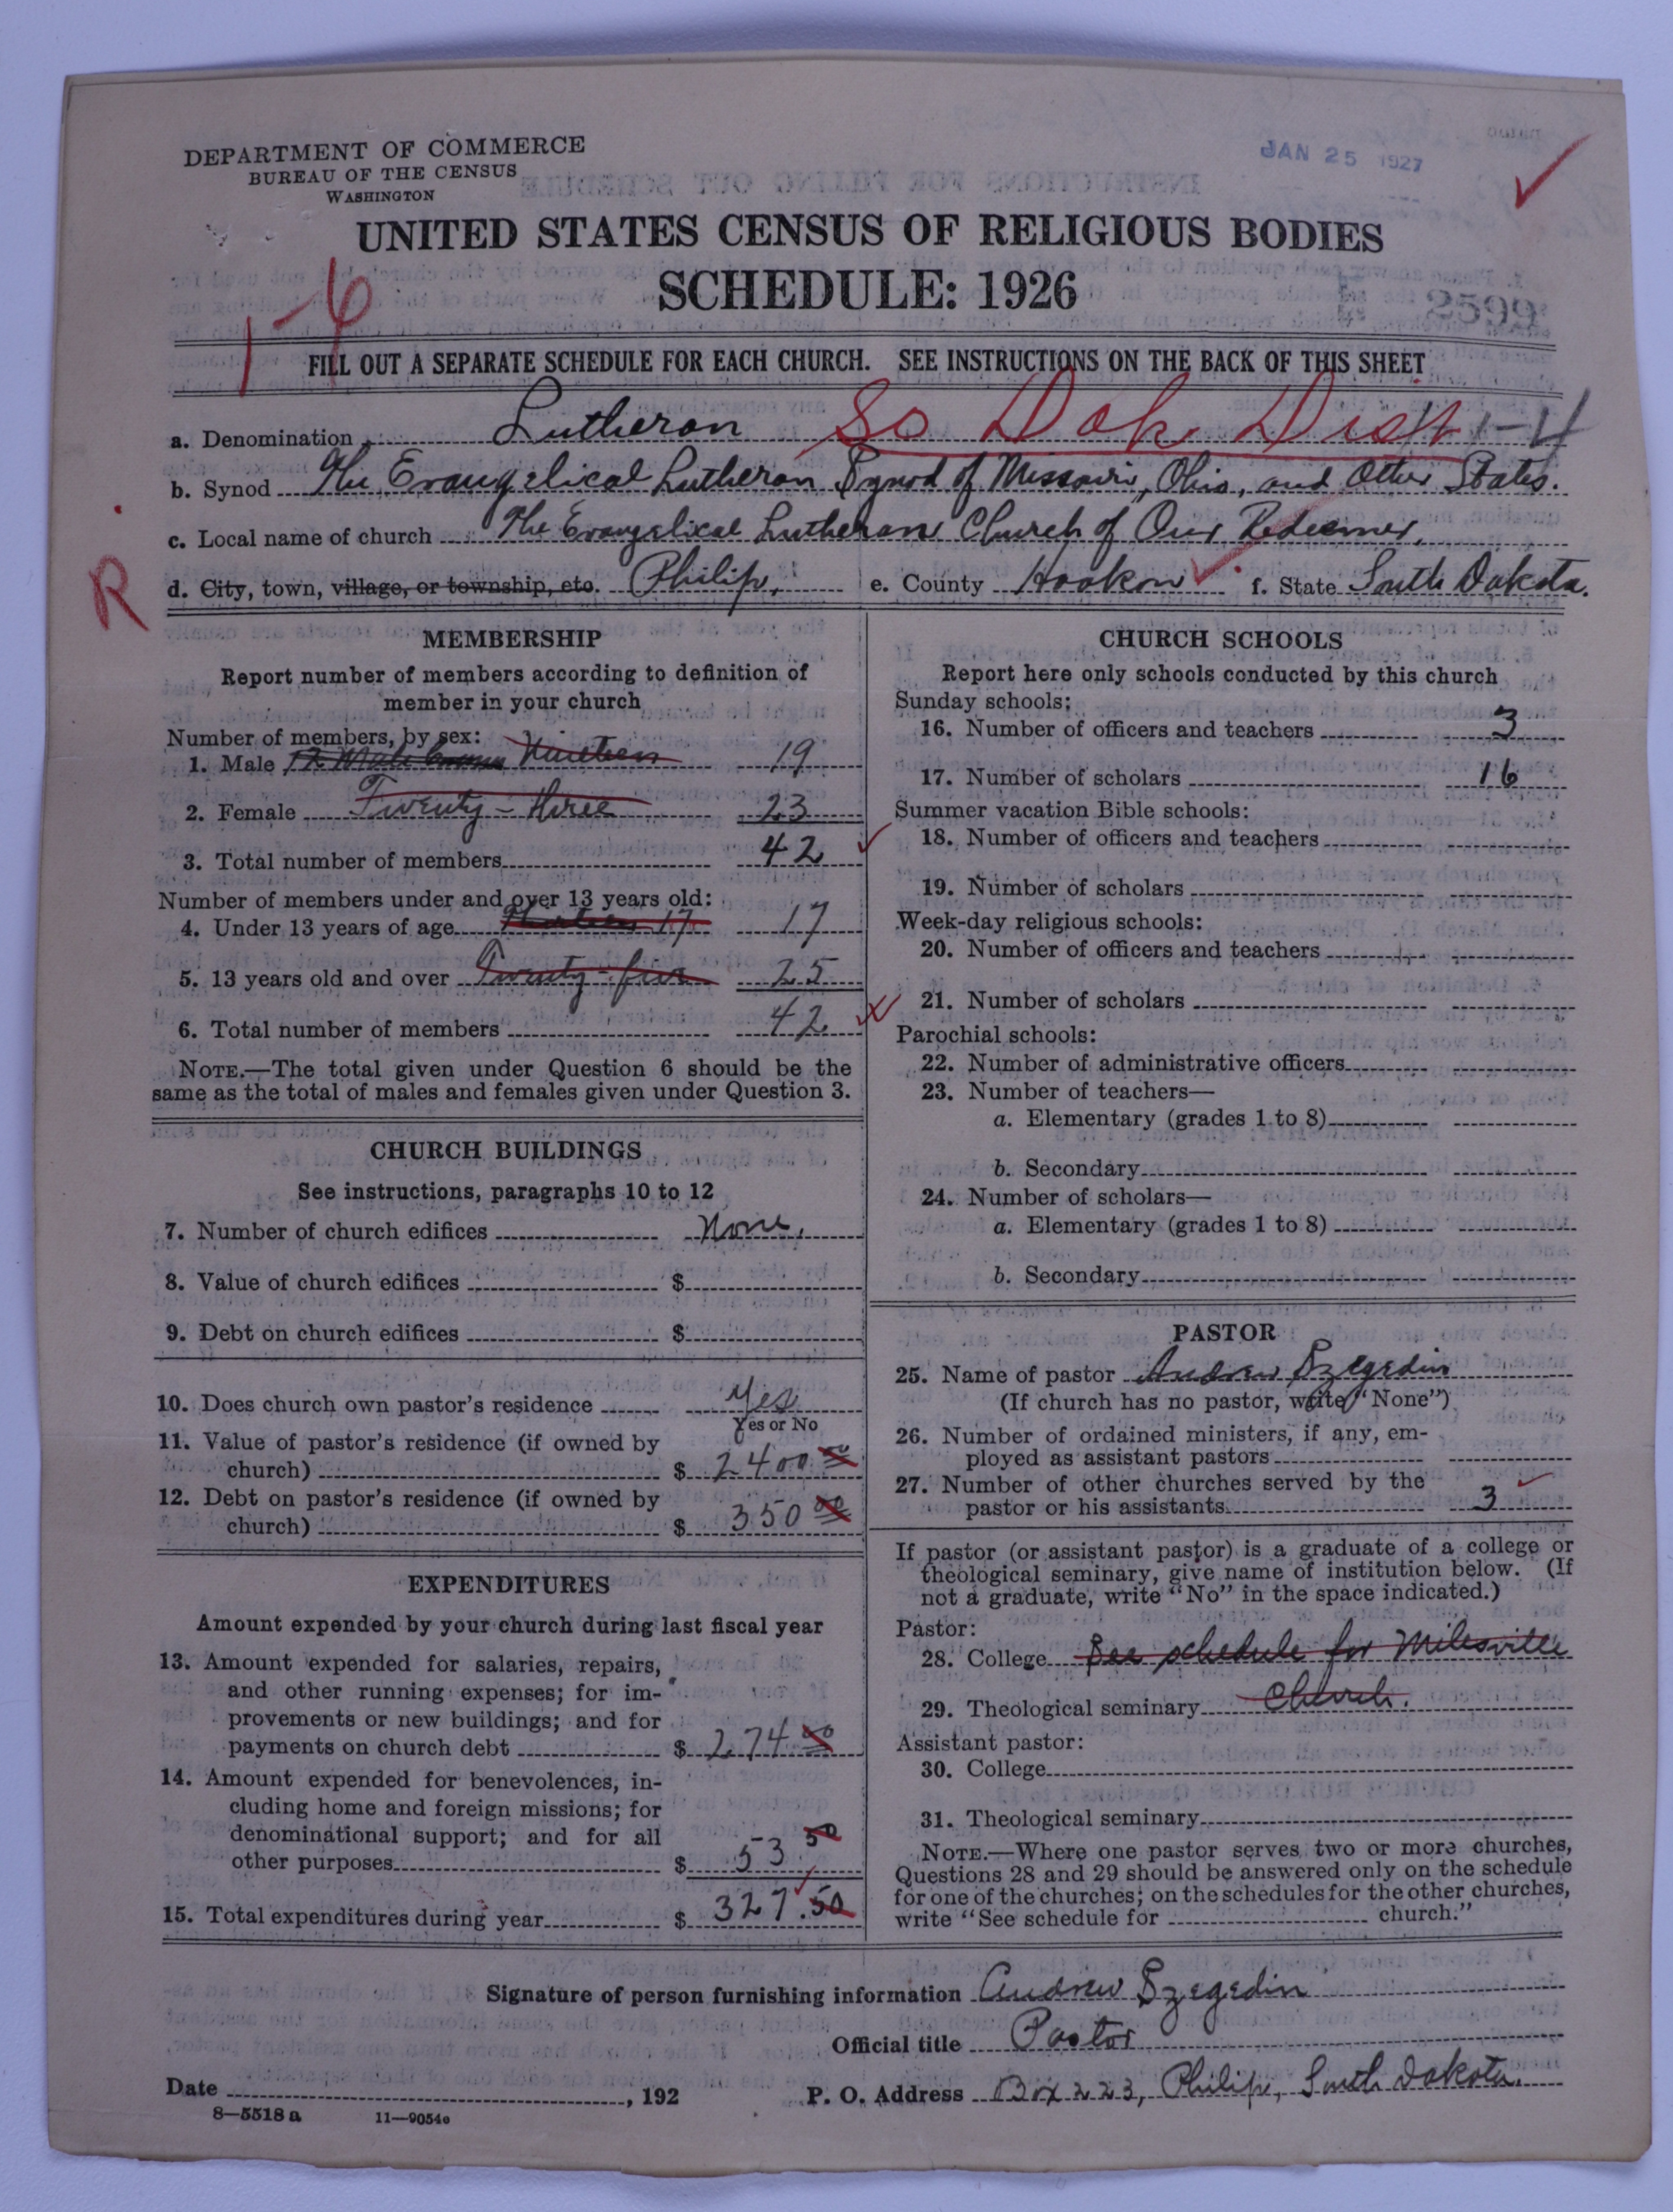 DEPARTMENT OF COMMERCE
BUREAU OF THE CENSUS
WASHINGTON
JAN 25 1927
UNITED STATES CENSUS OF RELIGIOUS BODIES
SCHEDULE: 1926
1-6
2599
FILL OUT A SEPARATE SCHEDULE FOR EACH CHURCH. SEE INSTRUCTIONS ON THE BACK OF THIS SHEET
a. Denomination Lutheran So Dak Dist 1-4
b. Synod The Evangelical Lutheran Synod of Missouri, Ohio, and Other States.
c. Local name of church The Evangelical Lutheran Church of Our Redeemer.
R
d. City, town, village, or township, etc. Philip, e. County Haakon f. State South Dakota.
MEMBERSHIP
Report number of members according to definition of
member in your church
Number of members, by sex:
1. Male Nineteen 19
2. Female Twenty-three 23
3. Total number of members 42
Number of members under and over 13 years old:
4. Under 13 years of age 17 17
5. 13 years old and over Twenty-five 25
6. Total number of members 42
NOTE.—The total given under Question 6 should be the
same as the total of males and females given under Question 3.
CHURCH BUILDINGS
See instructions, paragraphs 10 to 12
7. Number of church edifices None.
8. Value of church edifices $
9. Debt on church edifices $
10. Does church own pastor's residence Yes
Yes or No
11. Value of pastor's residence (if owned by
church) $ 2400 00
12. Debt on pastor's residence (if owned by
church) $ 350 00
EXPENDITURES
Amount expended by your church during last fiscal year
13. Amount expended for salaries, repairs,
and other running expenses; for im-
provements or new buildings; and for
payments on church debt $ 274 00
14. Amount expended for benevolences, in-
cluding home and foreign missions; for
denominational support; and for all
other purposes $ 53 50
15. Total expenditures during year $ 327.50
CHURCH SCHOOLS
Report here only schools conducted by this church
Sunday schools:
16. Number of officers and teachers 3
17. Number of scholars 16
Summer vacation Bible schools:
18. Number of officers and teachers
19. Number of scholars
Week-day religious schools:
20. Number of officers and teachers
21. Number of scholars
Parochial schools:
22. Number of administrative officers
23. Number of teachers—
a. Elementary (grades 1 to 8)
b. Secondary
24. Number of scholars—
a. Elementary (grades 1 to 8)
b. Secondary
PASTOR
25. Name of pastor Andrew Szegedin
(If church has no pastor, write "None")
26. Number of ordained ministers, if any, em-
ployed as assistant pastors
27. Number of other churches served by the
pastor or his assistants 3
If pastor (or assistant pastor) is a graduate of a college or
theological seminary, give name of institution below. (If
not a graduate, write "No" in the space indicated.)
Pastor:
28. College See schedule for Milesville
29. Theological seminary Church.
Assistant pastor:
30. College
31. Theological seminary
NOTE.—Where one pastor serves two or more churches,
Questions 28 and 29 should be answered only on the schedule
for one of the churches; on the schedules for the other churches,
write "See schedule for church."
Signature of person furnishing information Andrew Szegedin
Official title Pastor
Date , 192 P. O. Address Box 223, Philip, South Dakota.
8—5518 a 11—9054e